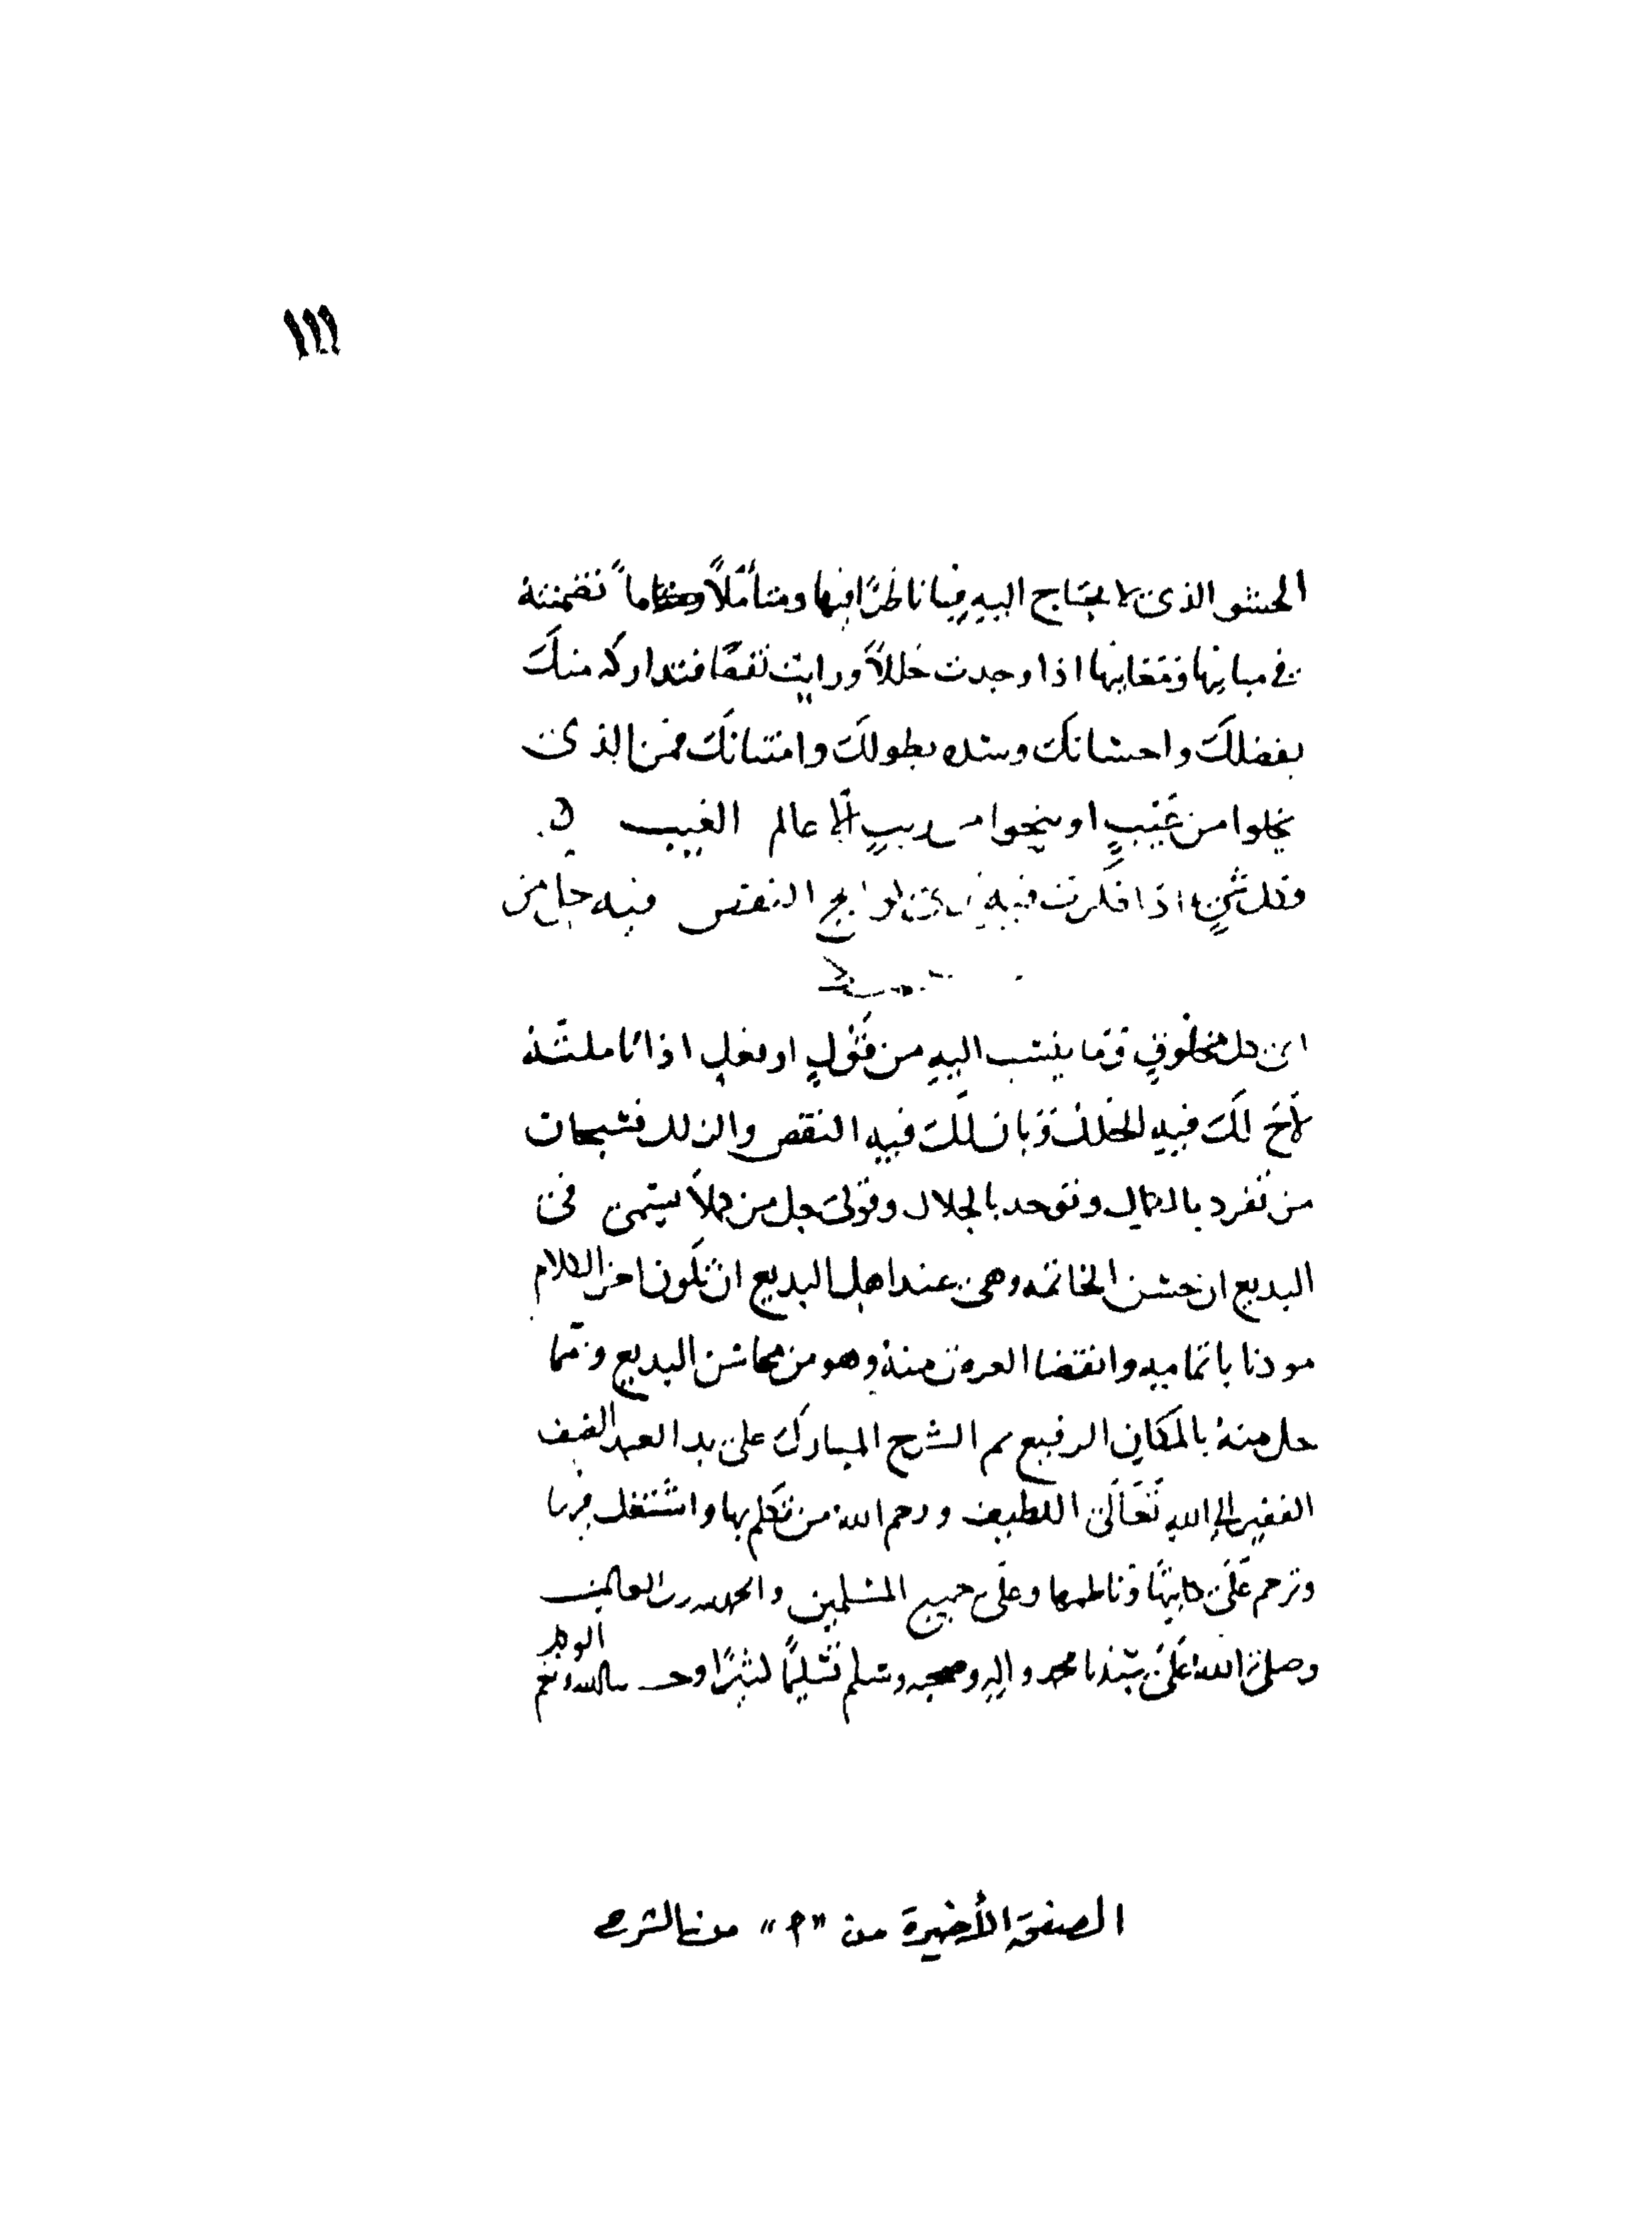 ١١١
الحشو الذى لا يحتاج اليه فيا ناظرًا فيها ومتأملًا تضمنته
فى مبانيها ومعانيها اذا وجدت خللاً ورايت نقصًا فتداركه منك
بفضلك واحسانك وسده بطولك وامتنانك فمن الذى
يخلوا من عَيْبٍ او ينجوا من ريبٍ الا عالم الغيب
وكل شىءٍ اذا فكرت فيه النقص فيه جل من
اى كل مخلوقٍ وما ينسب اليه من قولٍ او فعلٍ اذا تاملته
لاح لك فيه الخلل وبان لك فيه النقص والزلل فسبحان
من تفرد بالكمال وتوحد بالجلال وقولى جل من كملا يسمى فى
البديع ان حسن الخاتمه وهى عند اهل البديع ان تكون اخر الكلام
موذنا باتمامه وانقضا منه وهو من محاسن البديع ومما
حل منه بالمكان الرفيع تم الشرح المبارك على يد العبد
الفقير الى الله تَعَالَى اللطيف ورحم الله من تكلم بها واشتغل
وترحم على كاتبها وناظمها وعلى جميع المسلمين والحمد لله رب العالمين
وصلى الله على سيدنا محمد واله وصحبه وسلم تسليمًا كثيرًا وحسبنا الله ونعم
الوكيل
الصفحة الأخيرة من "م" من الشرح